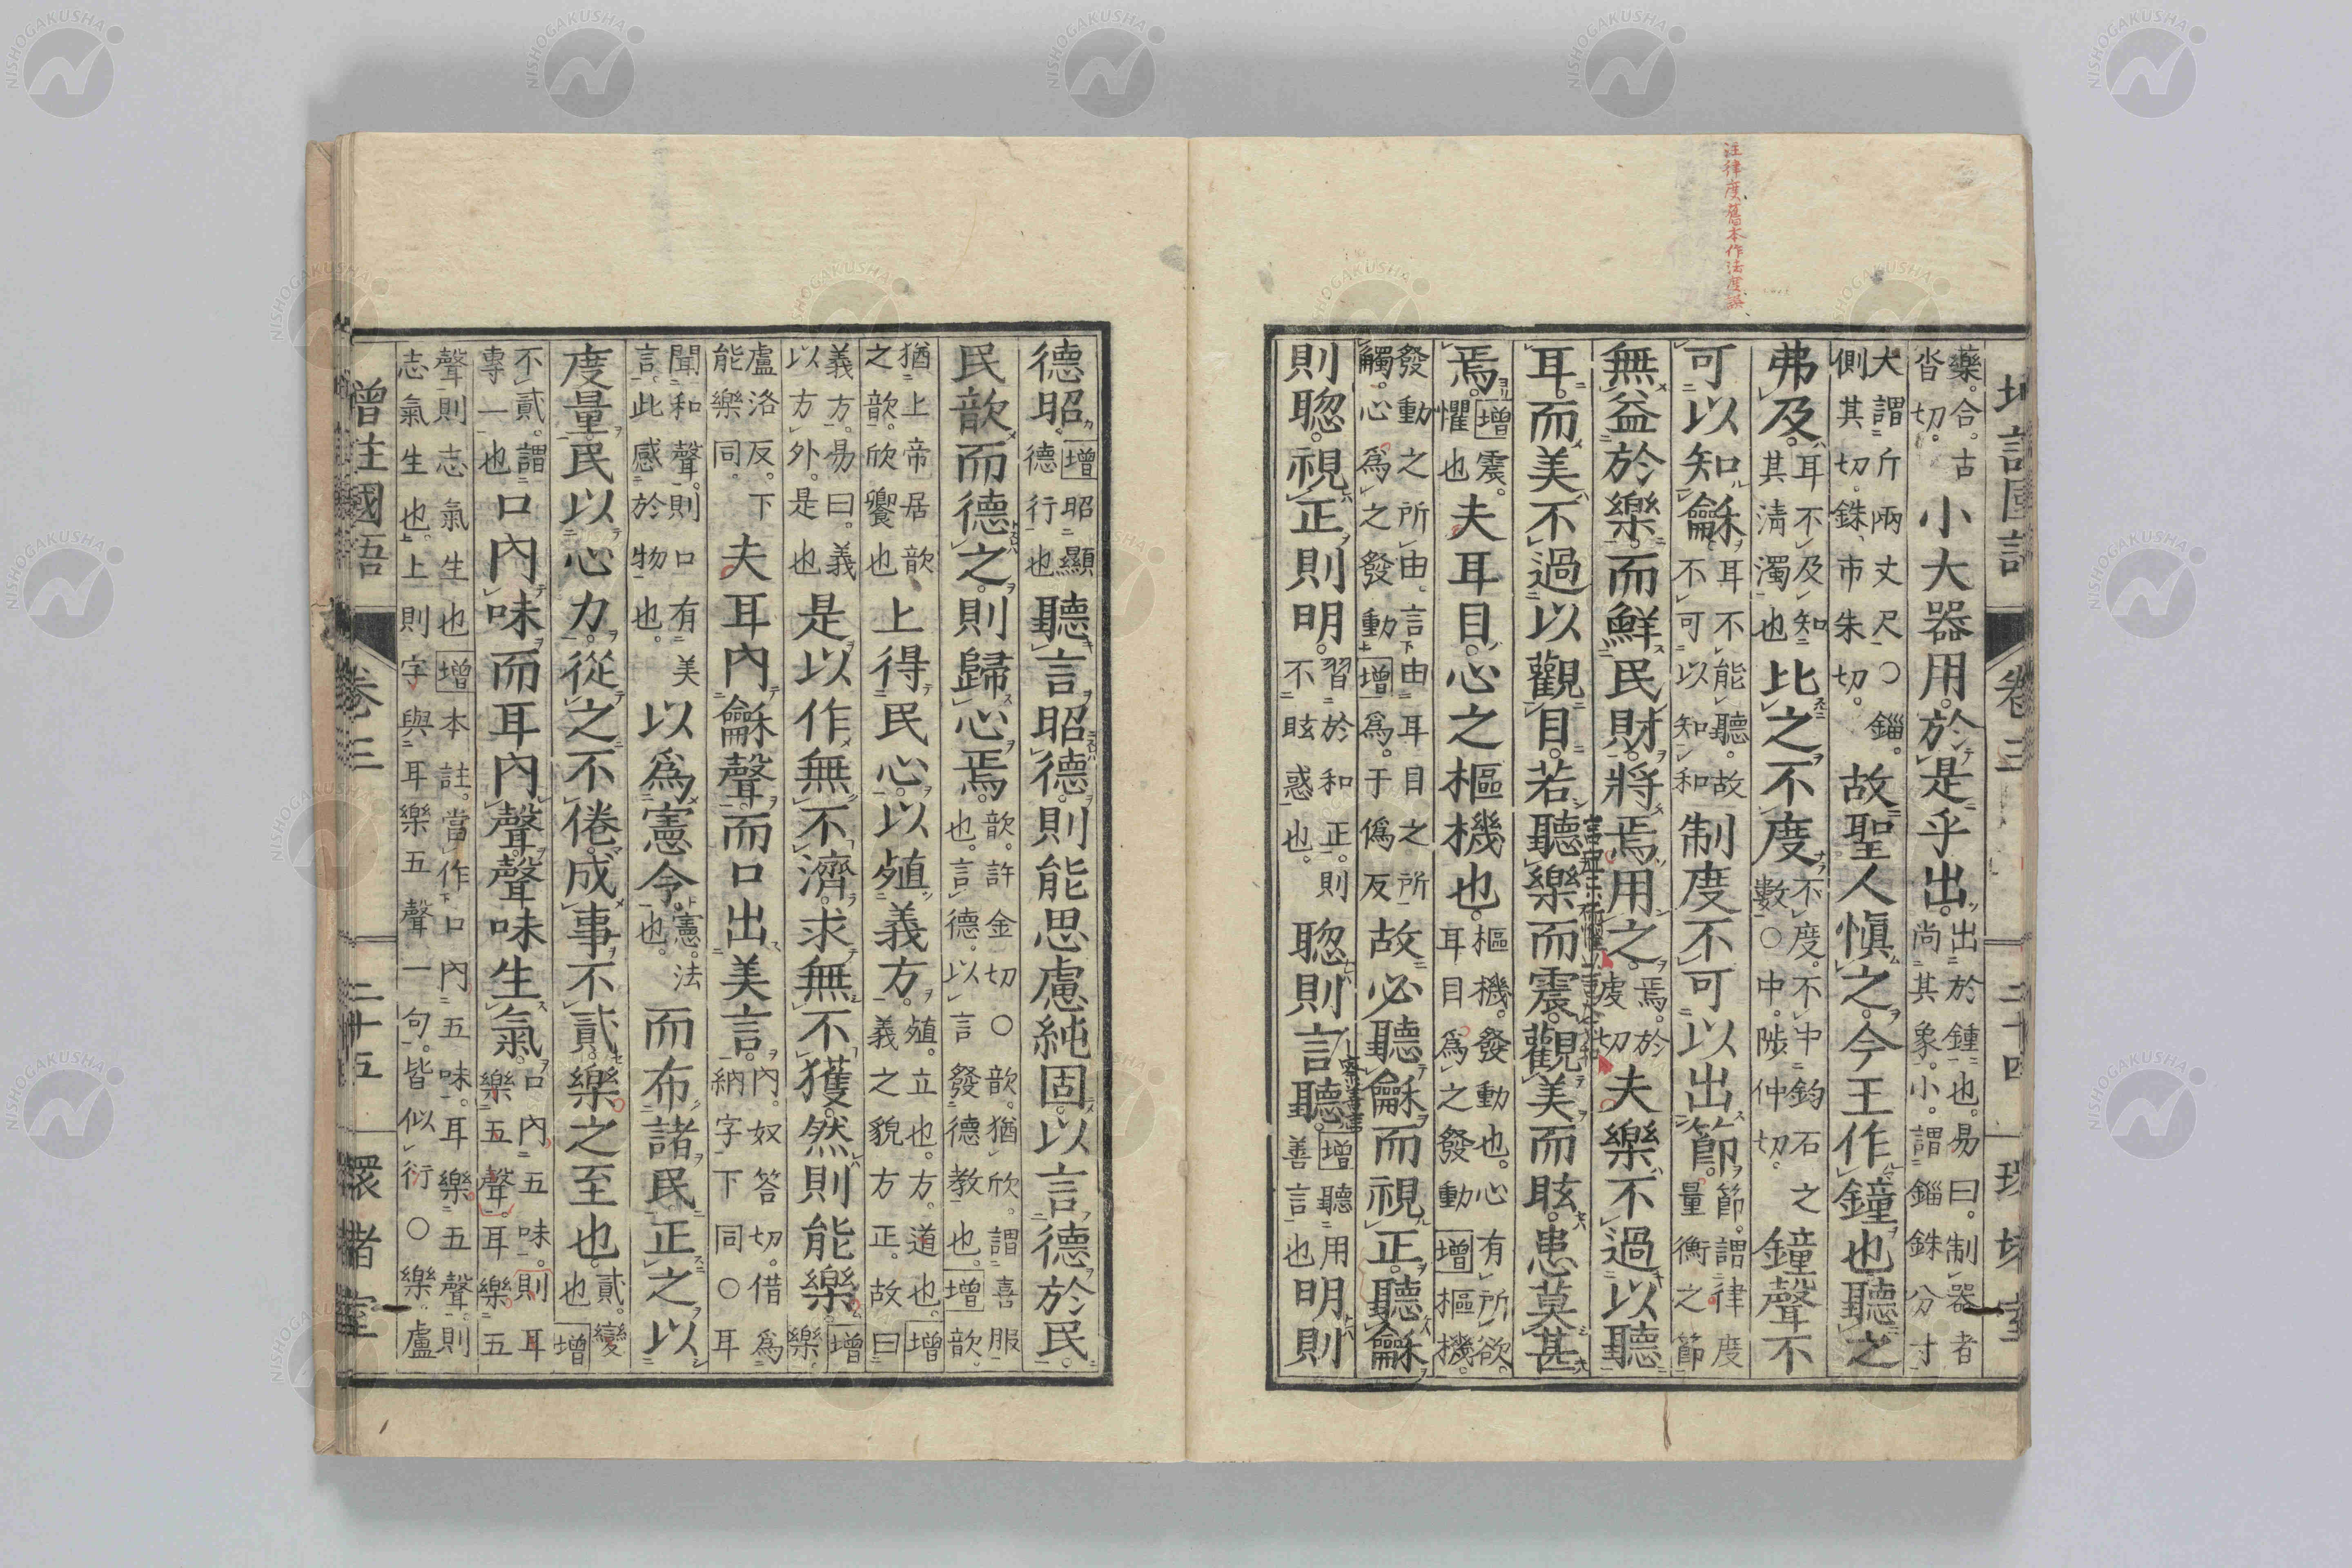 注律度舊本作法度誤
卷三
藥。合。古沓切。小大器用。於是乎出。出於鍾也。易曰。制器者尚其象。小。謂錙銖分寸
大謂斤兩丈尺○錙。側其切。銖。市朱切。故聖人愼之。今王作鐘也聽之
弗及。耳不及知其淸濁也比之不度。不度。不中鈞石之數○中。陟仲切。鐘聲不
可以知龢。耳不能聽。故不可以知和制度不可以出節。節。謂律度量衡之節
無益於樂。而鮮民財。將焉用之。焉。於虔切夫樂不過以聽
耳。而美不過以觀目。若聽樂而震。觀美而眩。患莫甚
焉。増震。懼也夫耳目。心之樞機也。樞機。發動也。心有所欲。耳目爲之發動増樞機。
發動之所由。言由耳目之所觸。心爲之發動増爲。于僞反故必聽龢而視正。聽龢
則聰。視正則明。習於和正。則不眩惑也。聰則言聽。増聽用善言也明則
德昭。増昭顯德行也聽言昭德。則能思慮純固。以言德於民。
民歆而德之。則歸心焉。歆。許金切○歆。猶欣。謂喜服也。言德。以言發德教也。増歆。
猶上帝居歆之歆。欣饗也上得民心。以殖義方。殖。立也。方。道也。義之貌方正。故曰増
義方。易曰。義以方外。是也是以作無不濟。求無不獲。然則能樂。増樂。
盧洛反。下能樂同。夫耳內龢聲。而口出美言。內。奴答切。借爲納字下同○耳
聞和聲。則口有美言。此感於物也。以爲憲令。憲。法也。而布諸民。正之以
度量。民以心力。從之不倦。成事不貳。樂之至也。貳。變也増
不貳。謂專一也口內味。而耳內聲。聲味生氣。口內五味。則耳樂五聲。耳樂五
聲則志氣生也増本註。當作口內五味。耳樂五聲。則志氣生也。上則字與耳樂五聲一句。皆似衍○樂。盧
増註國語 卷三 二十五 環堵室